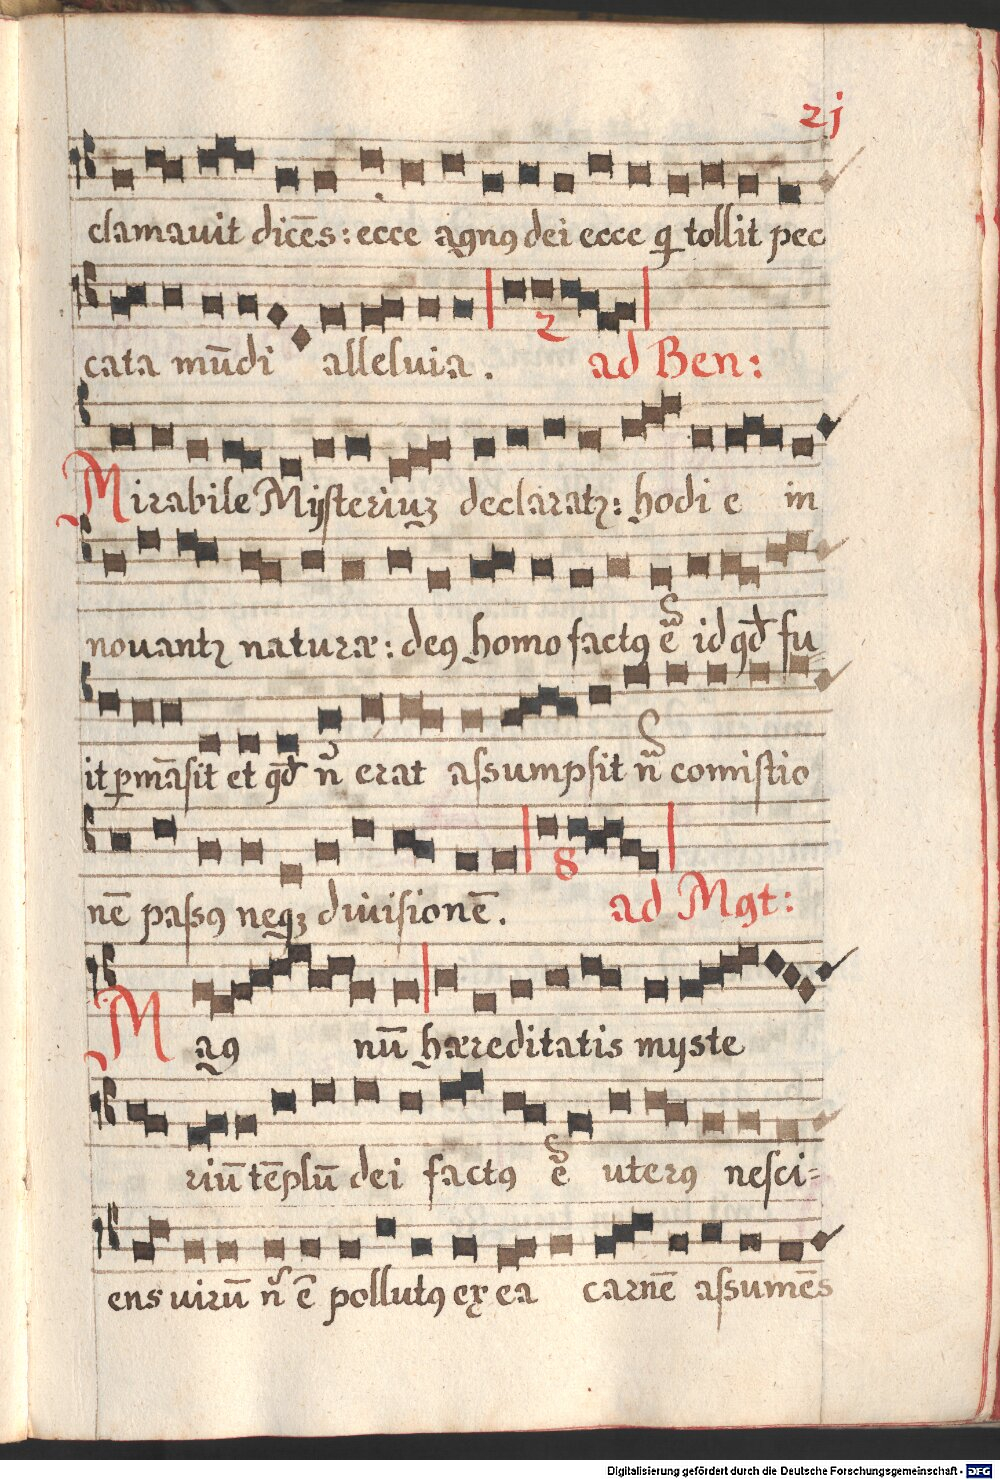 21
clamavit dicēs: ecce agnꝰ dei ecce q̄ tollit pec
cata mūdi alleluia.
2
ad Ben:
Mirabile Mÿsteriuꝫ declaratꝛ: hodie in
novantꝛ naturæ: deꝰ homo factꝰ ē id qd̄ fu
it ꝑmāsit et qd̄ ñ erat assumpsit ñ comistio
nē passꝰ neqꝫ divisionē.
8
ad Mgt:
Magnū hæreditatis mÿste
riū tēplū dei factꝰ ē uterꝰ nesci=
ens uirū ñ ē pollutꝰ ex ea carnē assumēs
Digitalisierung gefördert durch die Deutsche Forschungsgemeinschaft - DFG